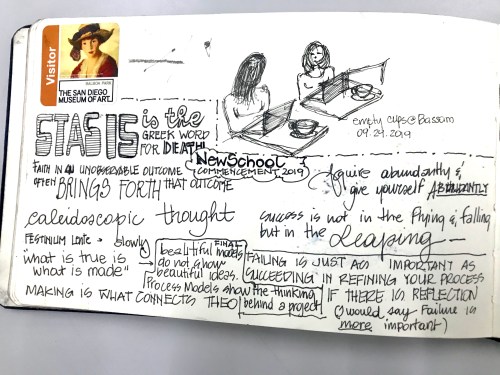 Visitor
BALBOA PARK
THE SAN DIEGO
MUSEUM OF ART
empty cups@Bassam
09.29.2019
STASIS is the
GREEK WORD
FOR DEATH!
NewSchool
COMMENCEMENT 2019
FAITH IN AN UNOBSERVABLE OUTCOME
OFTEN BRINGS FORTH THAT OUTCOME
abundantly &
give yourself ABUNDANTLY
caleidoscopic thought
success is not in the flying & falling
but in the Leaping
slowly
what is true is
what is made"
beautiful FINAL models
do not show
beautiful ideas.
Process Models show the thinking
behind a project
FAILING IS JUST AS IMPORTANT AS
SUCCEEDING IN REFINING YOUR PROCESS
IF THERE IS REFLECTION
(I would say failure is
more important)
MAKING IS WHAT CONNECTS